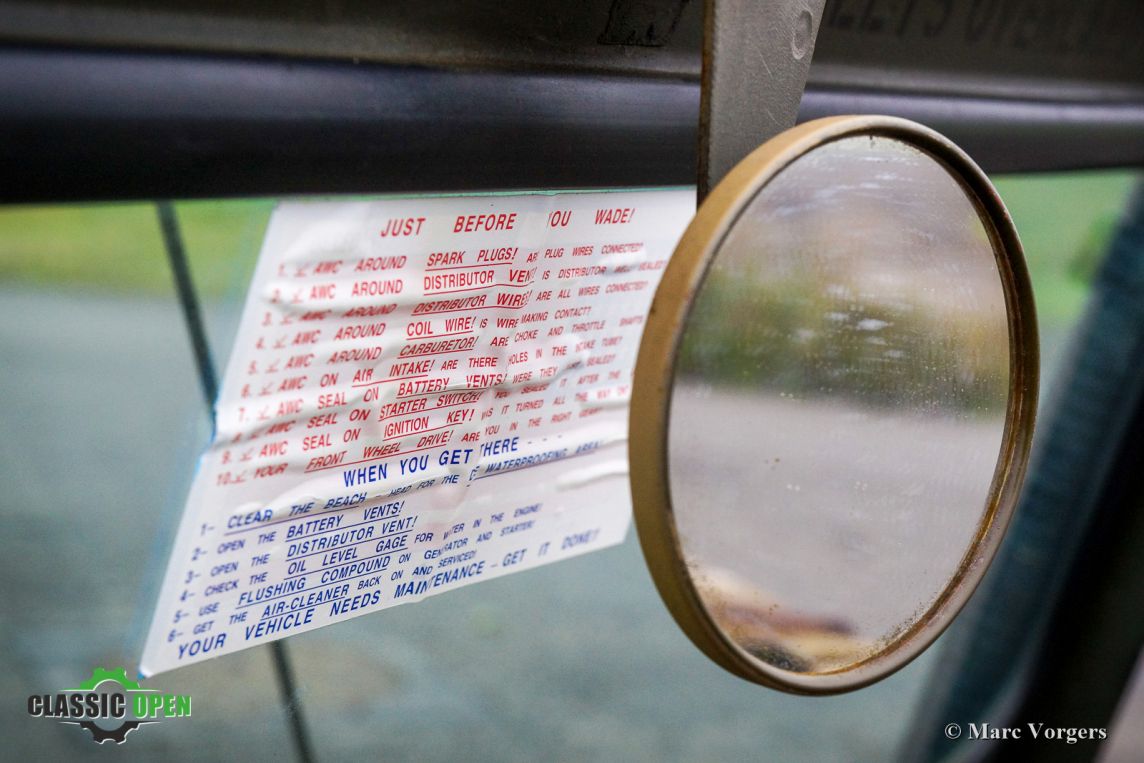 JUST BEFORE YOU WADE!
1. AWC AROUND SPARK PLUGS! ARE PLUG WIRES CONNECTED?
2. AWC AROUND DISTRIBUTOR VENT! IS DISTRIBUTOR WELL SEALED?
3. AWC AROUND DISTRIBUTOR WIRES! ARE ALL WIRES CONNECTED?
4. AWC AROUND COIL WIRE! IS WIRE MAKING CONTACT?
5. AWC AROUND CARBURETOR! ARE CHOKE AND THROTTLE SHAFTS
6. AWC ON AIR INTAKE! ARE THERE HOLES IN THE INTAKE TUBE?
7. AWC SEAL ON BATTERY VENTS! WERE THEY SEALED?
8. AWC SEAL ON STARTER SWITCH! YOU SEALED IT AFTER THE
9. AWC SEAL ON IGNITION KEY! IS IT TURNED ALL THE WAY
10. YOUR FRONT WHEEL DRIVE! ARE YOU IN THE RIGHT GEAR?
WHEN YOU GET THERE - - -
1- CLEAR THE BEACH - HEAD FOR THE DE WATERPROOFING AREA!
2- OPEN THE BATTERY VENTS!
3- OPEN THE DISTRIBUTOR VENT!
4- CHECK THE OIL LEVEL GAGE FOR WATER IN THE ENGINE!
5- USE FLUSHING COMPOUND ON GENERATOR AND STARTER!
6- GET THE AIR-CLEANER BACK ON AND SERVICED!
YOUR VEHICLE NEEDS MAINTENANCE - GET IT DONE!!
CLASSIC OPEN
© Marc Vorgers